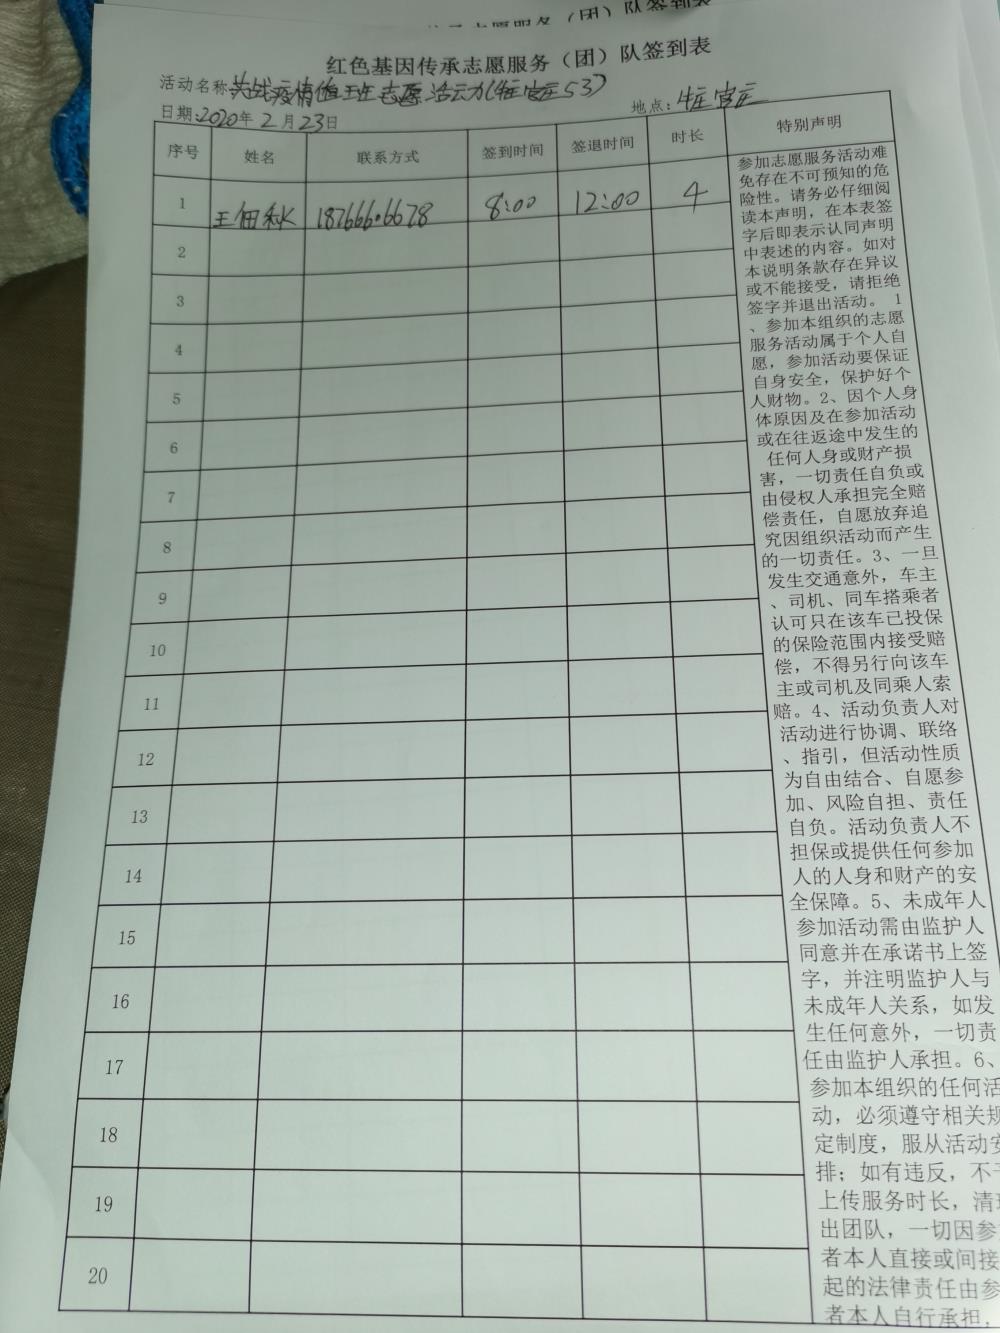 红色基因传承志愿服务（团）队签到表
活动名称 共战疫情值班志愿活动(牟官庄53)
日期:2020年2月23日 地点:牟官庄
序号 姓名 联系方式 签到时间 签退时间 时长 特别声明
1 王佃秋 18766606678 8:00 12:00 4
2
3
4
5
6
7
8
9
10
11
12
13
14
15
16
17
18
19
20
参加志愿服务活动难
免存在不可预知的危
险性。请务必仔细阅
读本声明，在本表签
字后即表示认同声明
中表述的内容。如对
本说明条款存在异议
或不能接受，请拒绝
签字并退出活动。 1
、参加本组织的志愿
服务活动属于个人自
愿，参加活动要保证
自身安全，保护好个
人财物。2、因个人身
体原因及在参加活动
或在往返途中发生的
任何人身或财产损
害，一切责任自负或
由侵权人承担完全赔
偿责任，自愿放弃追
究因组织活动而产生
的一切责任。3、一旦
发生交通意外，车主
、司机、同车搭乘者
认可只在该车已投保
的保险范围内接受赔
偿，不得另行向该车
主或司机及同乘人索
赔。4、活动负责人对
活动进行协调、联络
、指引，但活动性质
为自由结合、自愿参
加、风险自担、责任
自负。活动负责人不
担保或提供任何参加
人的人身和财产的安
全保障。5、未成年人
参加活动需由监护人
同意并在承诺书上签
字，并注明监护人与
未成年人关系，如发
生任何意外，一切责
任由监护人承担。6、
参加本组织的任何活
动，必须遵守相关规
定制度，服从活动安
排；如有违反，不予
上传服务时长，清
出团队，一切因参
者本人直接或间接
起的法律责任由参
者本人自行承担，